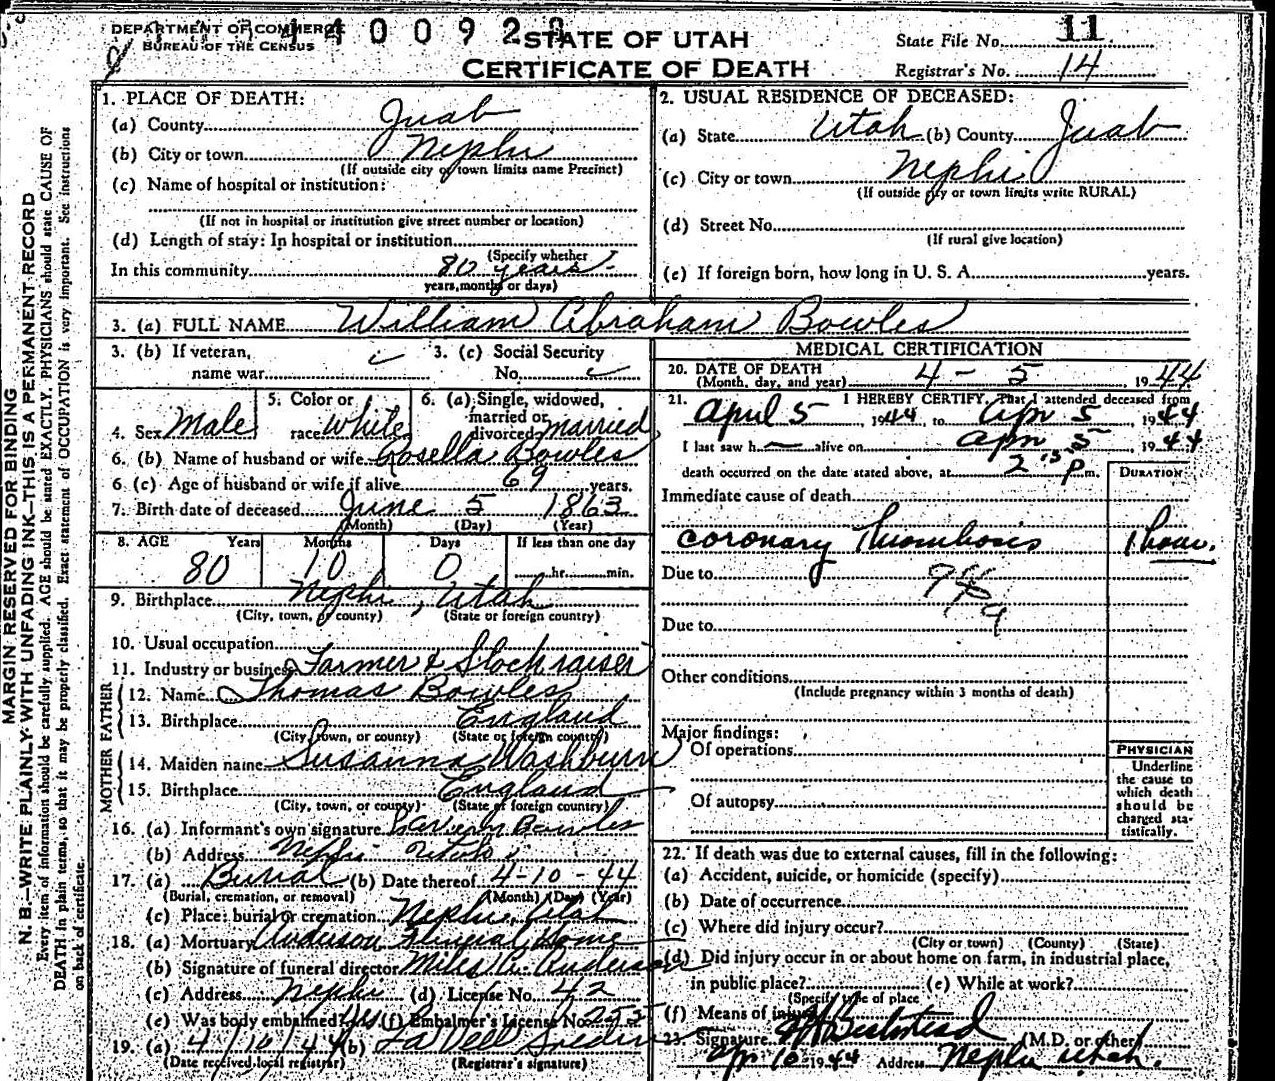 DEPARTMENT OF COMMERCE
BUREAU OF THE CENSUS
STATE OF UTAH
CERTIFICATE OF DEATH
State File No. 11
Registrar's No. 14
MARGIN RESERVED FOR BINDING
N. B.—WRITE PLAINLY WITH UNFADING INK—THIS IS A PERMANENT RECORD
Every item of information should be carefully supplied. AGE should be stated EXACTLY. PHYSICIANS should state CAUSE OF
DEATH in plain terms, so that it may be properly classified. Exact statement of OCCUPATION is very important. See instructions
on back of certificate.
1. PLACE OF DEATH:
(a) County Juab
(b) City or town Nephi
(If outside city or town limits name Precinct)
(c) Name of hospital or institution:
(If not in hospital or institution give street number or location)
(d) Length of stay: In hospital or institution
(Specify whether
In this community 80 years
years, months or days)
2. USUAL RESIDENCE OF DECEASED:
(a) State Utah (b) County Juab
(c) City or town Nephi
(If outside city or town limits write RURAL)
(d) Street No.
(If rural give location)
(e) If foreign born, how long in U. S. A. years.
3. (a) FULL NAME William Abraham Bowles
3. (b) If veteran,
name war
3. (c) Social Security
No.
4. Sex Male
5. Color or
race white
6. (a) Single, widowed,
married or
divorced married
6. (b) Name of husband or wife Rosella Bowles
6. (c) Age of husband or wife if alive 69 years.
7. Birth date of deceased June 5 1863
(Month) (Day) (Year)
8. AGE Years Months Days If less than one day
80 10 0 hr. min.
9. Birthplace Nephi, Utah
(City, town, or county) (State or foreign country)
10. Usual occupation
11. Industry or business Farmer & Stockraiser
FATHER
12. Name Thomas Bowles
13. Birthplace England
(City, town, or county) (State or foreign country)
MOTHER
14. Maiden name Susanna Washburn
15. Birthplace England
(City, town, or county) (State or foreign country)
16. (a) Informant's own signature Bowles
(b) Address Nephi Utah
17. (a) Burial (b) Date thereof 4-10-44
(Burial, cremation, or removal) (Month) (Day) (Year)
(c) Place: burial or cremation Nephi, Utah
18. (a) Mortuary Anderson Funeral Home
(b) Signature of funeral director Miles Anderson
(c) Address Nephi (d) License No. 42
(e) Was body embalmed? yes (f) Embalmer's License No. 255
19. (a) 4/10/44 (b)
(Date received local registrar) (Registrar's signature)
MEDICAL CERTIFICATION
20. DATE OF DEATH
(Month, day, and year) 4 - 5, 1944
21. I HEREBY CERTIFY, That I attended deceased from
April 5, 1944, to Apr 5, 1944
I last saw h alive on Apr 5, 1944
death occurred on the date stated above, at 2:15 P m.
DURATION
Immediate cause of death
coronary Thrombosis 1 hour.
Due to
Due to
Other conditions
(Include pregnancy within 3 months of death)
Major findings:
Of operations
Of autopsy
PHYSICIAN
Underline
the cause to
which death
should be
charged sta-
tistically.
22. If death was due to external causes, fill in the following:
(a) Accident, suicide, or homicide (specify)
(b) Date of occurrence
(c) Where did injury occur?
(City or town) (County) (State)
(d) Did injury occur in or about home on farm, in industrial place,
in public place? (e) While at work?
(Specify type of place
(f) Means of injury
23. Signature (M.D. or other)
Apr 10 1944 Address Nephi Utah.